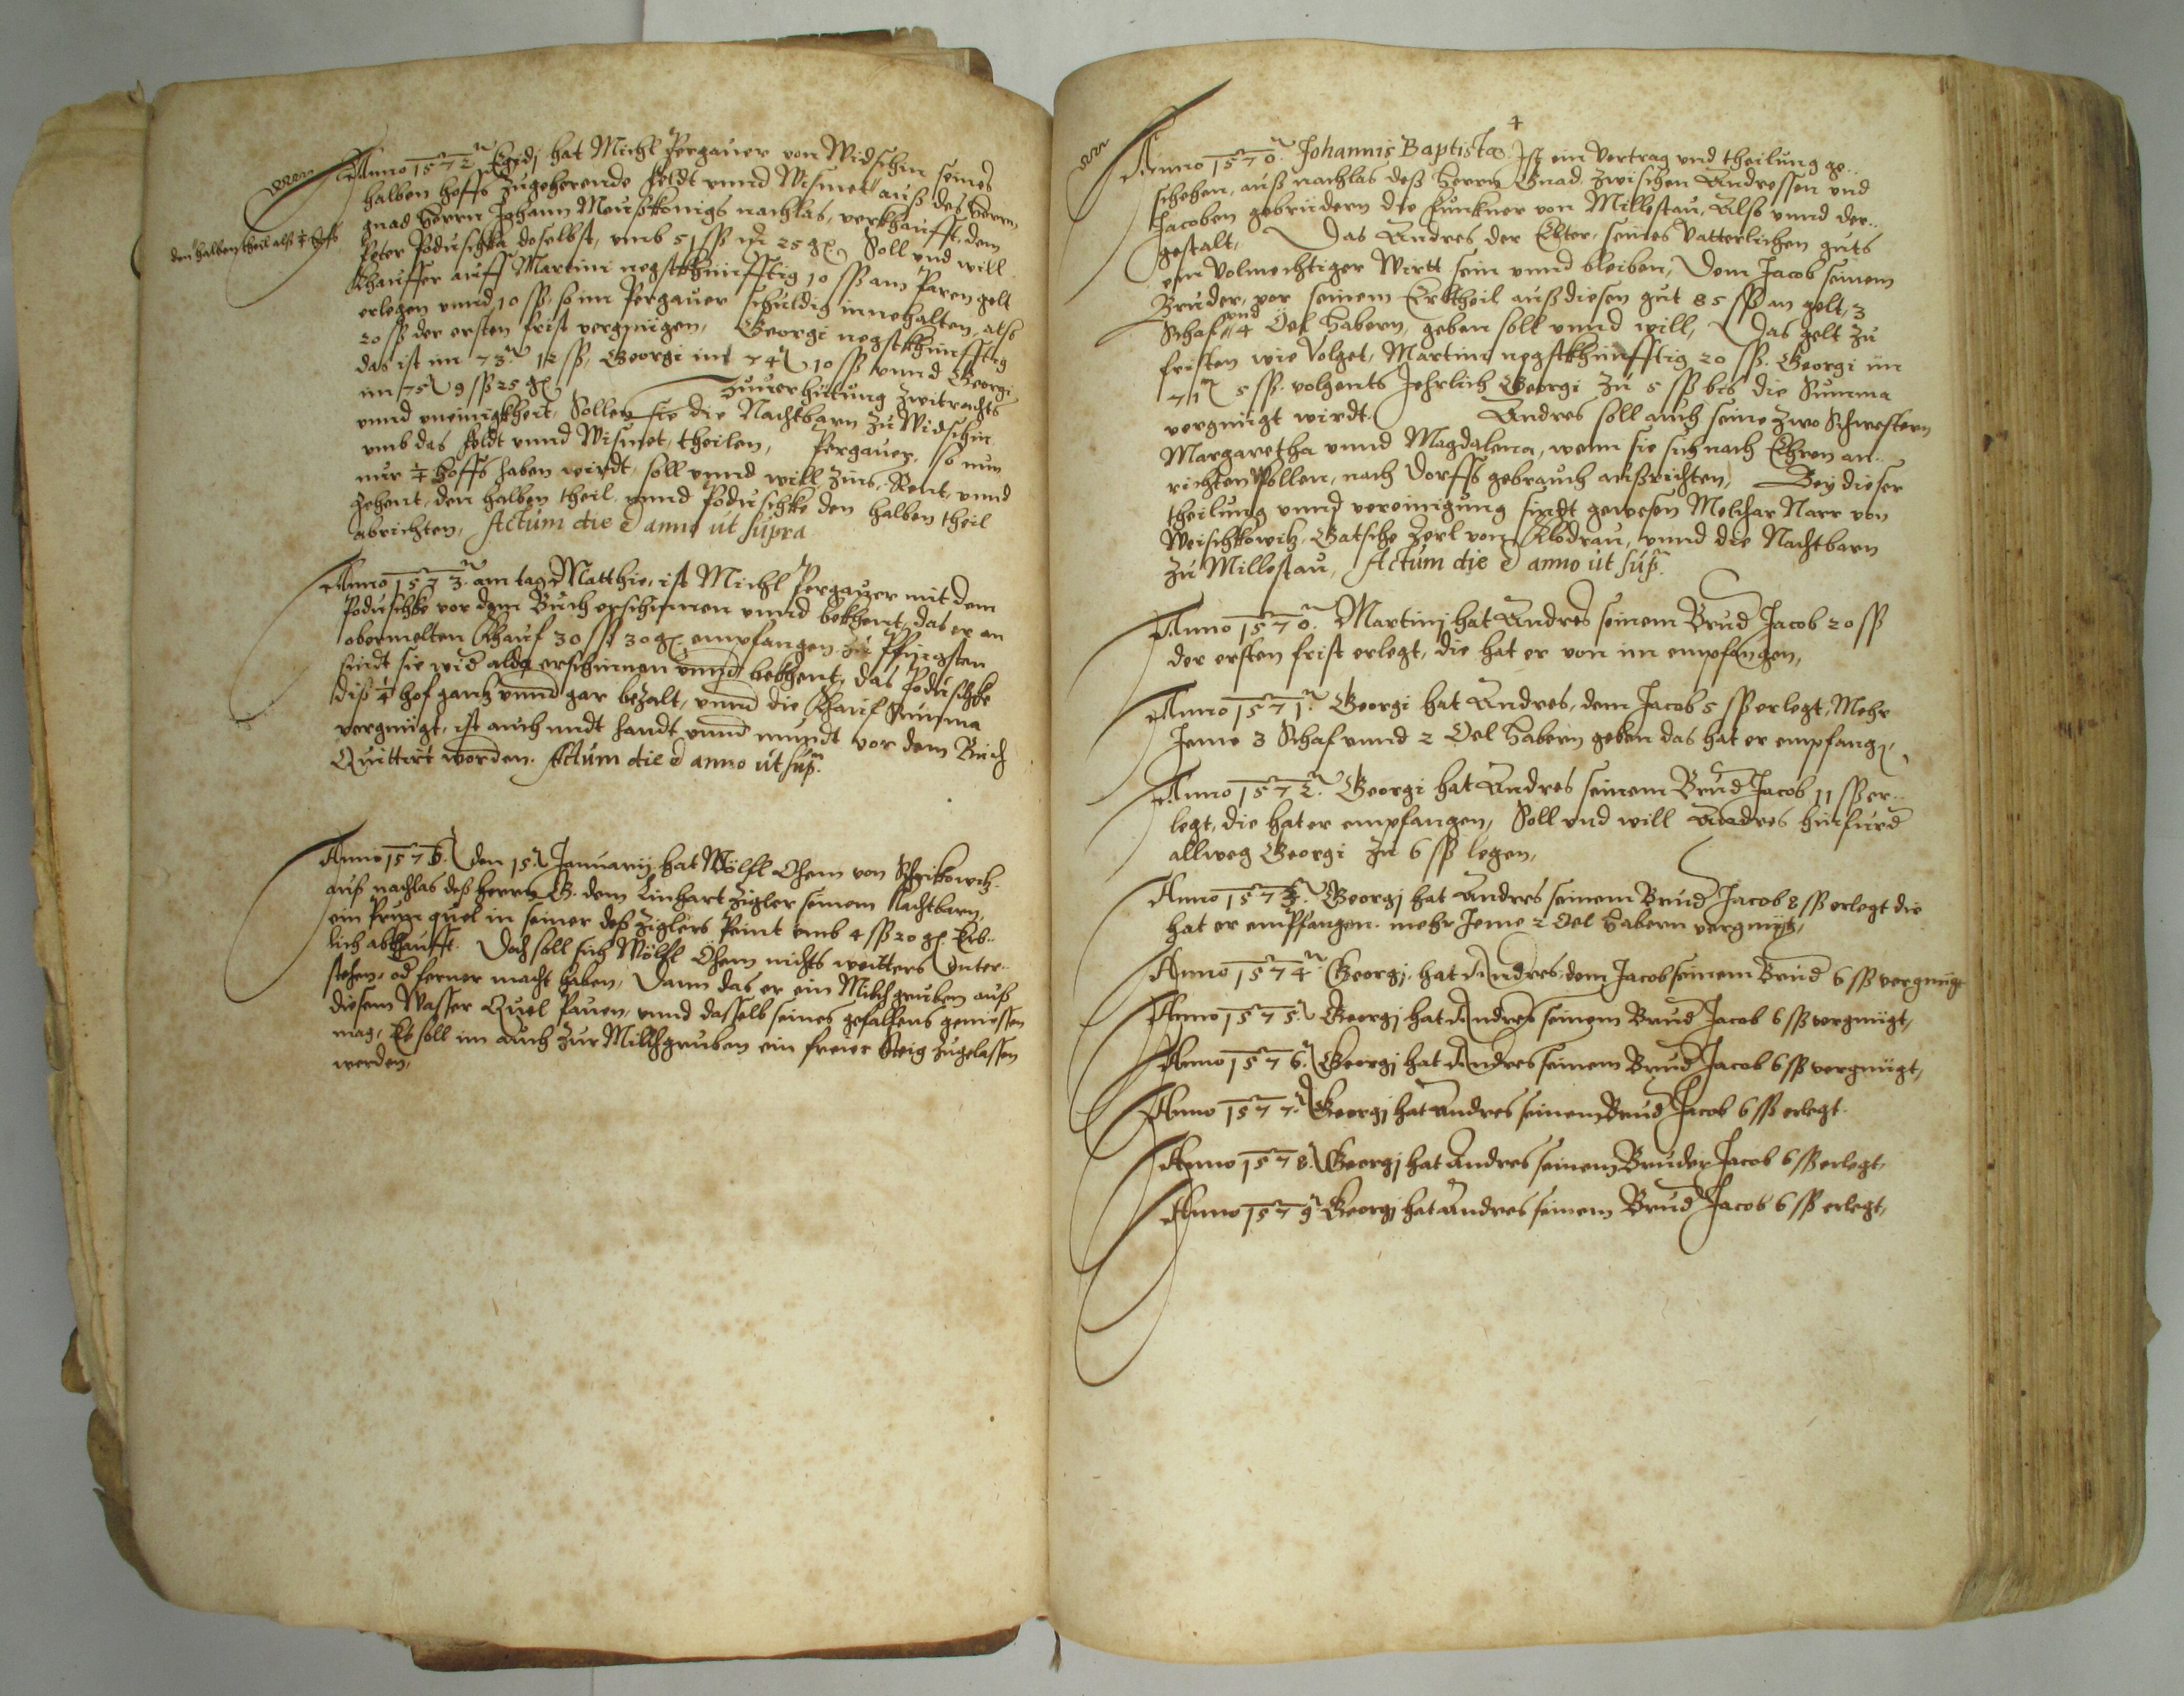 Anno 1572 Egidj hat Michl Pergauer von Widschin seines
halben hoffs zugehorende feldt unnd Wismet auß des herrn
den halben theil als ¼ hofs
gnad Herrn Johann Meußkönigs nachlas, verkhaufft dem
Peter Poduschka doselbst, umb 51 ß 25 g. Soll und will
Khauffer auff Martini negstkhünfftig 10 ß am Paren gelt
erlegen unnd 10 ß, so im Pergauer schuldig innehalten, also
20 ß der ersten frist vergnügen, Georgi negstkhünfftig
das ist im 73. 12 ß, Georgi im 74 10 ß unnd Georgi
im 75 9 ß 25 g. Zuuerhütung zwitrachts
unnd uneinigkheit, Sollen sie die Nachtbarn zu Widschin
umb das feldt unnd Wismet, theilen, Pergauer, so nun
nur ¼ hoffs haben wirdt, soll unnd will zins, Rent, unnd
zehent, den halben theil, unnd Poduschke den halben theil
abrichten, Actum die et anno ut supra
Anno 1573. am tag Matthie, ist Michl Pergauer mit dem
Poduschke vor dem Buch erschinnen unnd bekhent, das er an
obermelten Khauf 30 ß 30 g. empfangen, zu Pfingsten
sindt sie wid alda erschinnen unnd bekhent, das Poduschke
diß ¼ hof gantz unnd gar bezalt, unnd die Khauf Summa
vergnügt, ist auch mit handt unnd mundt vor dem Buch
Quittirt worden. Actum die et anno ut sup.
Anno 1576. den 15. Januarij, hat Wölfl Öhem von Schrikowitz
auß nachlas deß herrn G. dem Linhart Zigler seinem Nachtbarn,
ein Prun quel in seiner deß Ziglers Peint umb 4 ß 20 g. Erb-
lich abkhaufft. Doch soll sich Wölfl Öhem nichts weitters unter-
stehen, od ferner macht haben, Dann das er ein Milchgruben auß
diesem Wasser Quel Pauen, unnd dasselb seines gefallens geniessen
mag, Es soll im auch zur Milchgruben ein freier Steig zugelassen
werden,
4
Anno 1570. Johannis Baptistæ. Ist ein Vertrag und theilung ge-
schehen, auß nachlas deß Herrn Gnad. zwischen Andressen und
Jacoben gebrüdern die Funkner von Millestau, Also unnd der-
gestalt, Das Andres der Elter, seines Vatterlichen guts
ein Volmechtiger Wirtt sein unnd bleiben, Dem Jacob seinem
Bruder, vor seinem Erbtheil auß diesen gut 85 ß an gelt, 3
Schaf und 4 Öel Habern, geben soll unnd will, Das gelt zu
fristen wie Volget, Martini negstkhünfftig 20 ß. Georgi im
71 5 ß. volgents Jehrlich Georgi zu 5 ß bis die Summa
vergnügt wirdt. Andres soll auch seine zwo Schwestern
Margaretha unnd Magdalena, wenn sie sich nach Ehren an-
richten wollen, nach Dorffs gebrauch außrichten, Bey dieser
theilung unnd vereinigung sindt gewesen Melchar Narr von
Weischkowitz, Gatsche Zerl von Klodrau, unnd die Nachtbarn
zu Millestau, Actum die et anno ut sup.
Anno 1570. Martinj hat Andres seinem Brud Jacob 20 ß
der ersten frist erlegt, die hat er von im empfangen,
Anno 1571. Georgi hat Andres, dem Jacob 5 ß erlegt, Mehr
Ieme 3 Schaf unnd 2 Oel Habern geben das hat er empfang.
Anno 1572. Georgi hat Andres seinem Brud Jacob 11 ß er-
legt, die hat er empfangen, Soll und will Andres hinfurd
allweg Georgi zu 6 ß legen,
Anno 1573. Georgj hat Andres seinem Brud Jacob 8 ß erlegt die
hat er empfangen. mehr Ieme 2 Oel Habern vergnügt,
Anno 1574 Georgj, hat Andres, dem Jacob seinem Brud 6 ß vergnügt
Anno 1575. Georgj hat Andres seinem Brud Jacob 6 ß vergnügt,
Anno 1576. Georgj hat Andres seinem Brud Jacob 6 ß vergnügt,
Anno 1577. Georgj hat Andres seinem Brud Jacob 6 ß erlegt.
Anno 1578. Georgj hat Andres seinem Bruder Jacob 6 ß erlegt,
Anno 1579 Georgj hat Andres seinem Brud Jacob 6 ß erlegt,